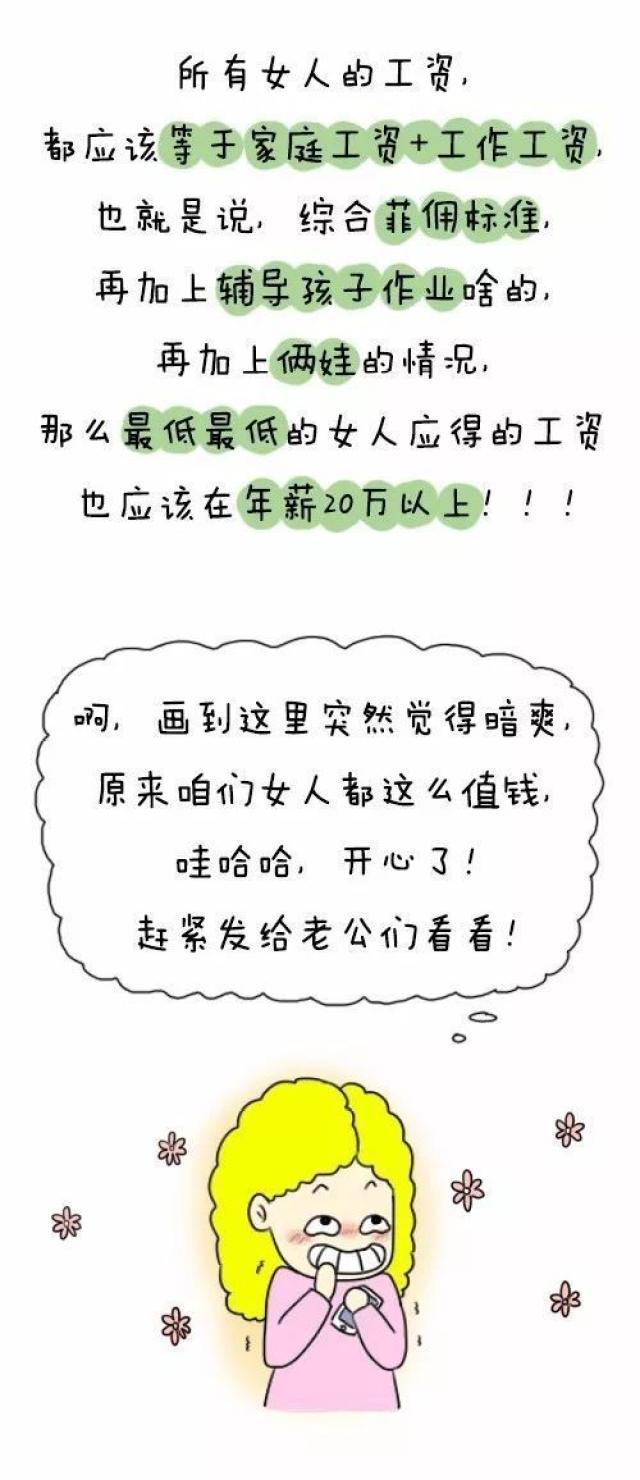 所有女人的工资,
都应该等于家庭工资+工作工资,
也就是说, 综合菲佣标准,
再加上辅导孩子作业啥的,
再加上俩娃的情况,
那么最低最低的女人应得的工资
也应该在年薪20万以上! ! !
啊, 画到这里突然觉得暗爽,
原来咱们女人都这么值钱,
哇哈哈, 开心了!
赶紧发给老公们看看!